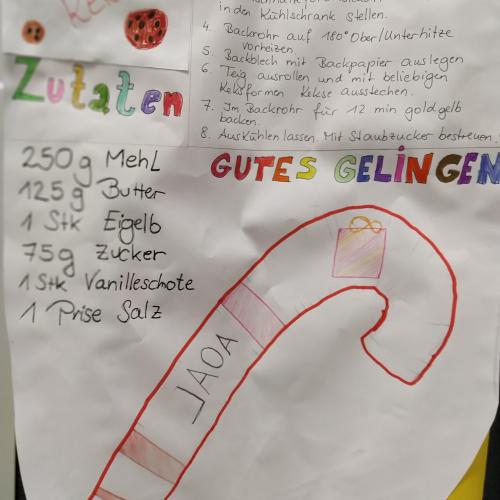 in den Kühlschrank stellen.
4. Backrohr auf 180° Ober/Unterhitze
vorheizen.
5. Backblech mit Backpapier auslegen
6. Teig ausrollen und mit beliebigen
Keksformen Kekse ausstechen.
7. Im Backrohr für 12 min goldgelb
backen.
8. Auskühlen lassen. Mit Staubzucker bestreuen.
Zutaten
250g Mehl
125g Butter
1 Stk Eigelb
75g Zucker
1 Stk Vanilleschote
1 Prise Salz
GUTES GELINGEN